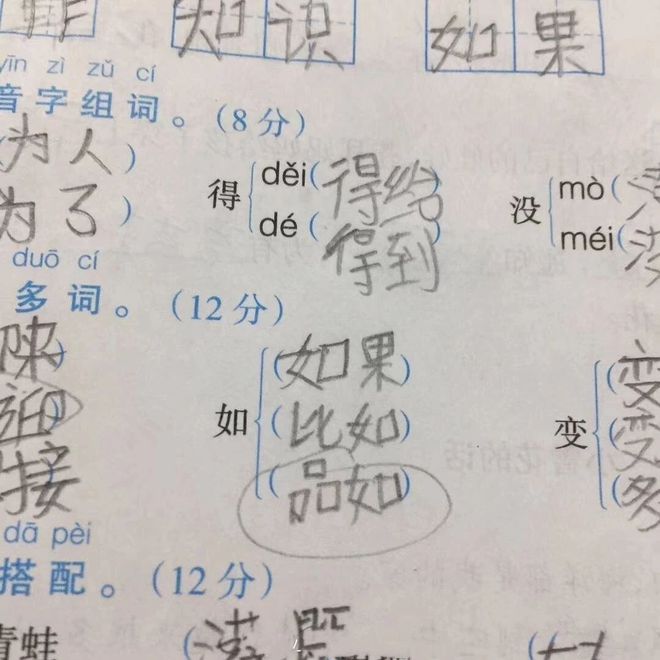 知识 如果
yīn zì zǔ cí
音字组词。（8分）
为人）
děi（得给）
得
没 mò（
dé（得到）
为了）
méi（
duō cí
多词。（12分）
（如果）
如（比如）
（品如）
变（变
变
接
dā pèi
搭配。（12分）
青蛙